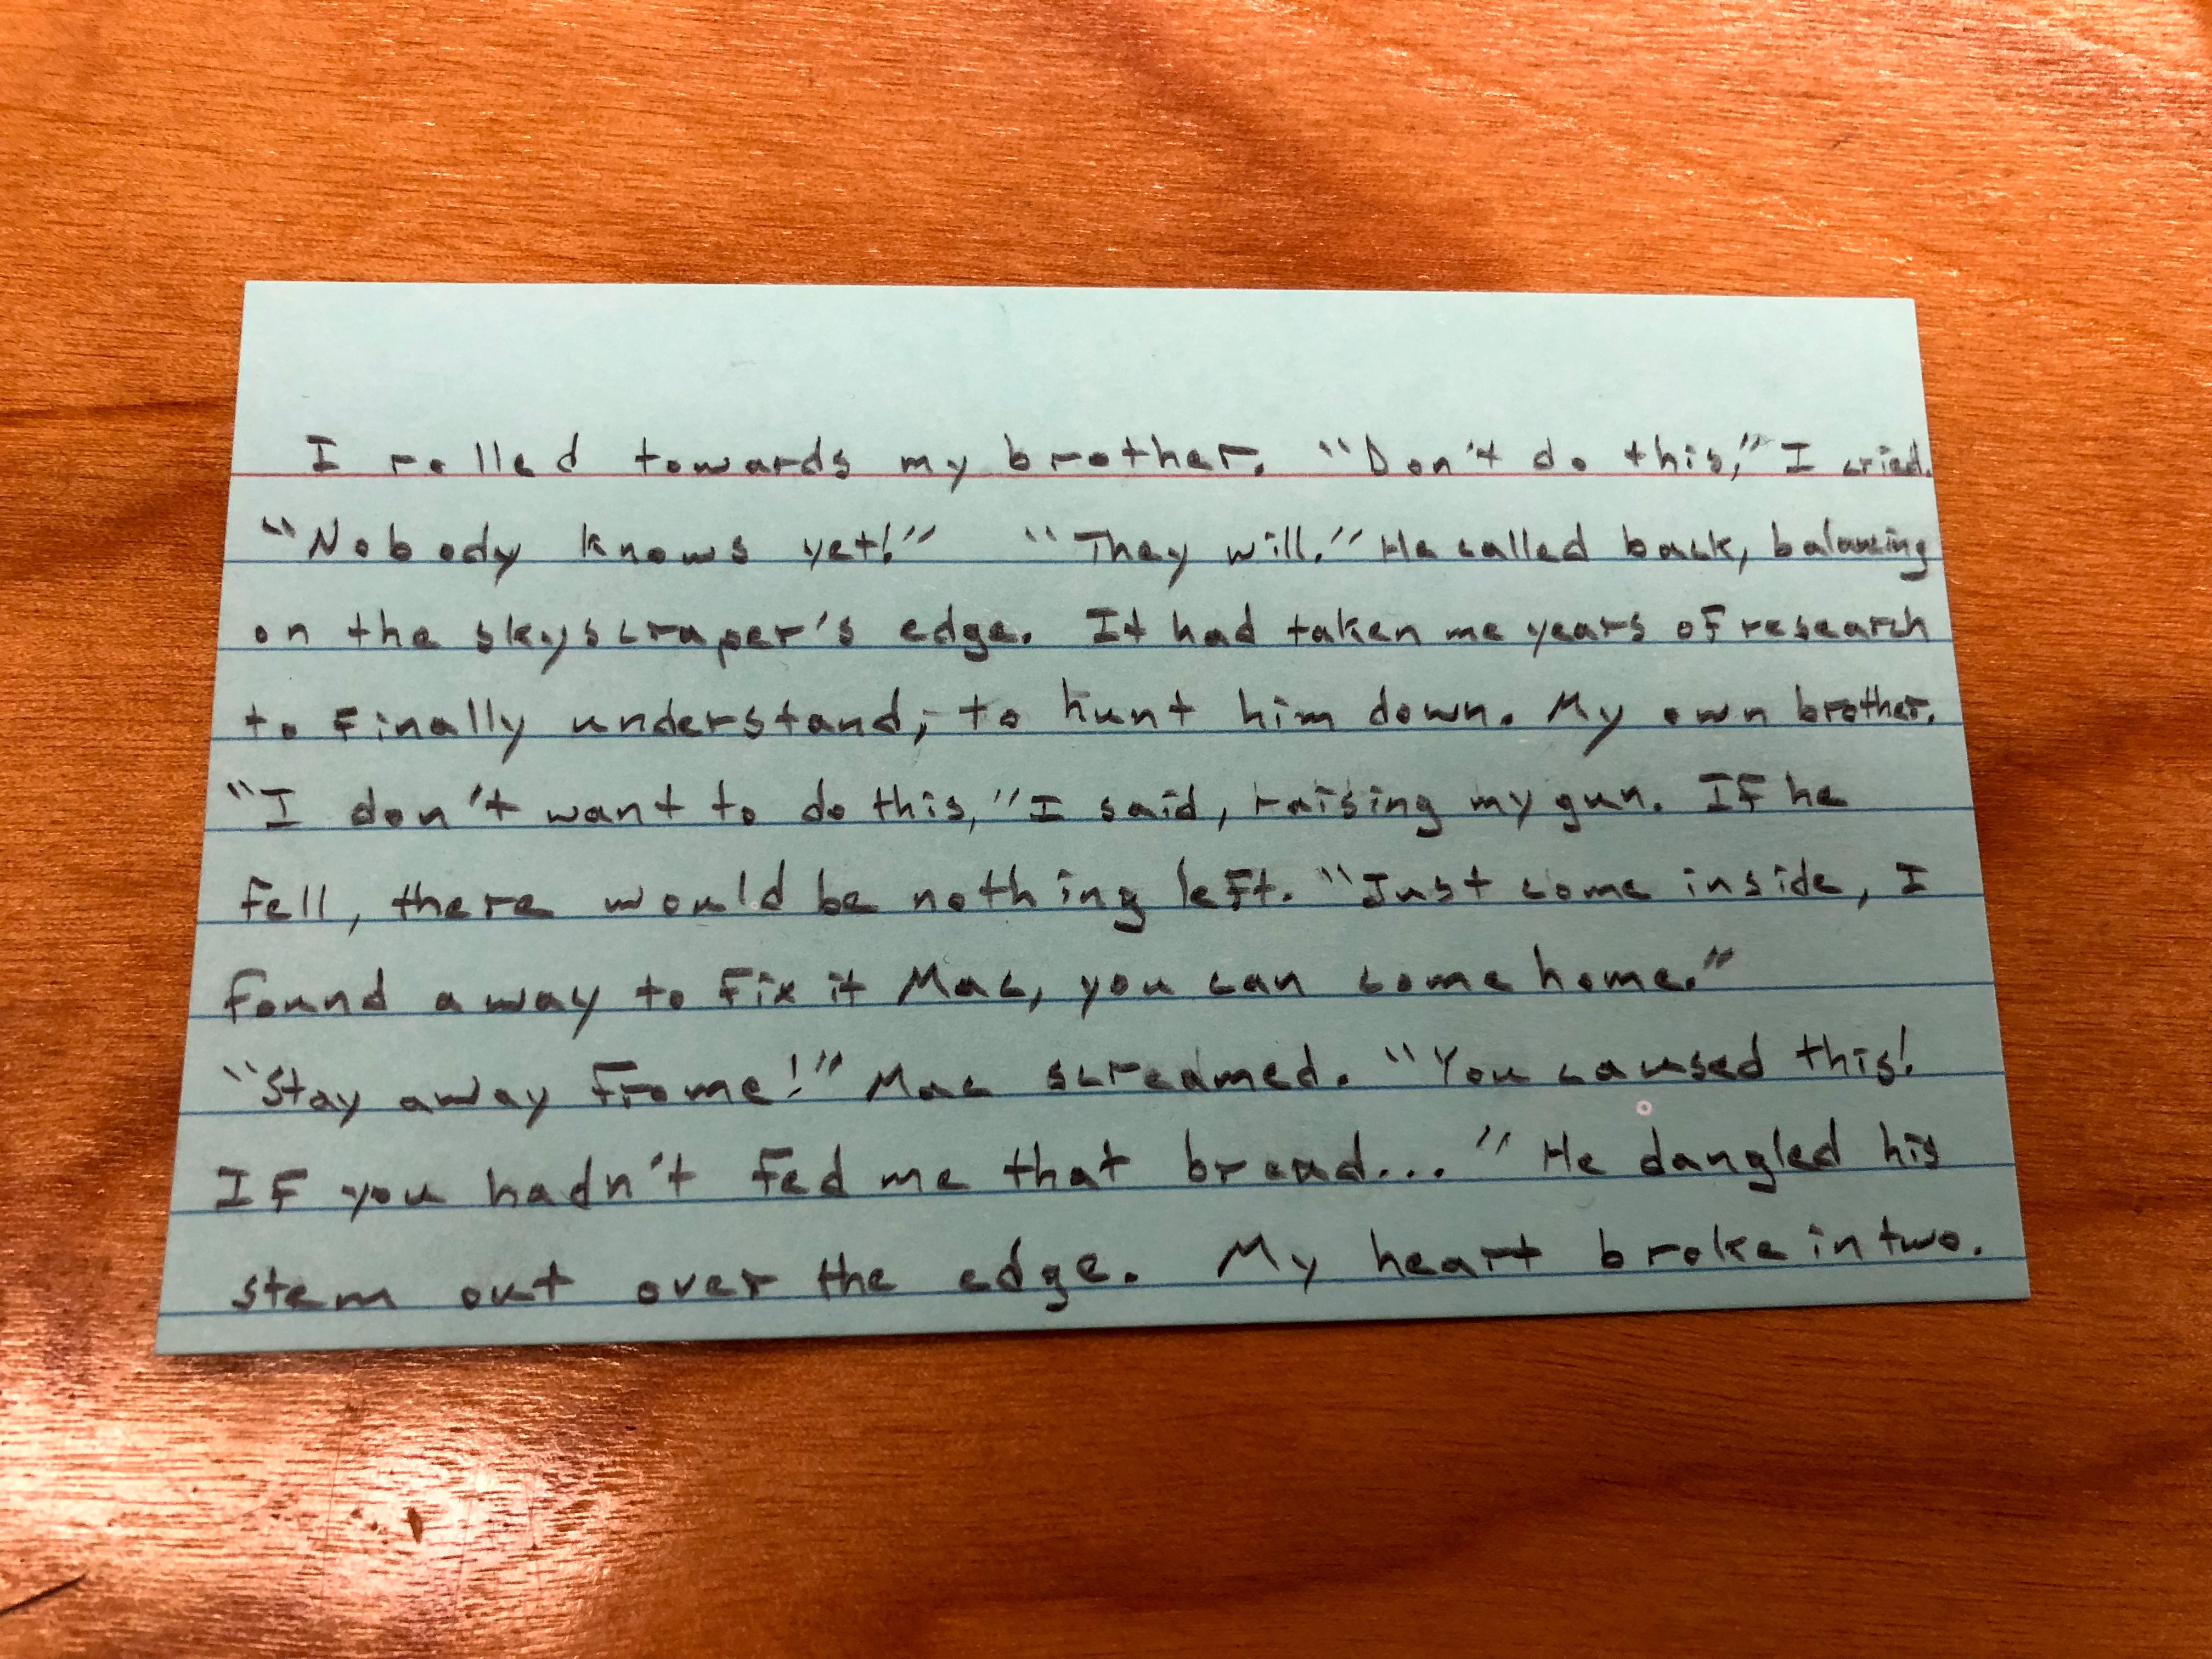 I rolled towards my brother. "Don't do this," I cried.
"Nobody knows yet!" "They will." He called back, balancing
on the skyscraper's edge. It had taken me years of research
to finally understand, to hunt him down. My own brother.
"I don't want to do this," I said, raising my gun. If he
fell, there would be nothing left. "Just come inside, I
found a way to fix it Mac, you can come home."
"Stay away frome!" Mac screamed. "You caused this!
If you hadn't fed me that bread..." He dangled his
stem out over the edge. My heart broke in two.